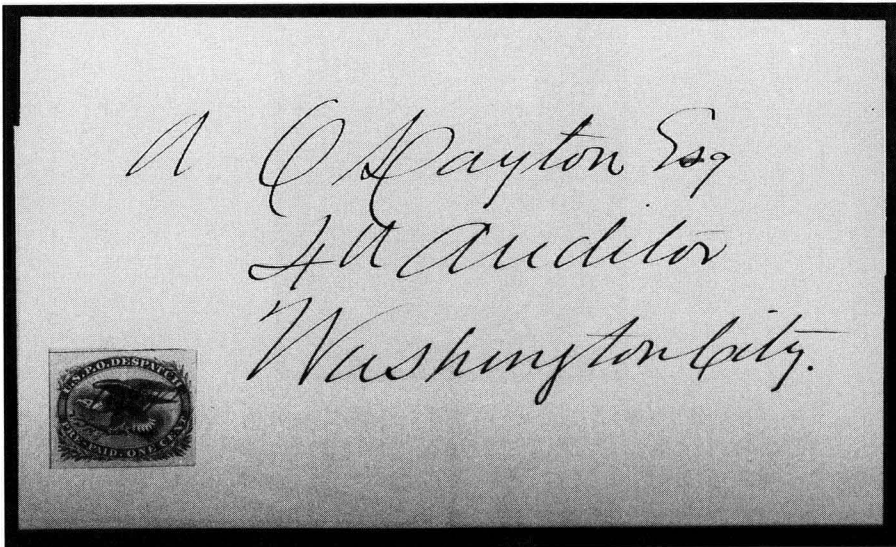 A O Dayton Esq
4th Auditor
Washington City.
U.S.P.O. DESPATCH
PRE-PAID. ONE CENT